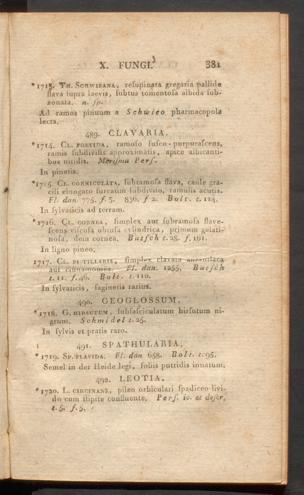 X. FUNGI. 381
*1713. TH. SCHWIEANA, resupinata gregaria pallide
flava supra laevis, subtus tomentosa albida sub-
zonata. n. sp.
Ad ramos pinuum a Schwieo pharmacopola
lecta.
489. CLAVARIA.
*1714. CL. FOETIDA, ramoso fusco-purpurascens,
ramis subdivisis approximatis, apice albicanti-
bus nitidis. Merisma Pers.
In pinetis.
*1715. CL. CORNICULATA, subramosa flava, caule gra-
cili elongato sursum subdiviso, ramulis acutis.
Fl. dan. 775. f. 3. 836. f. 2. Bolt. t. 114.
In sylvaticis ad terram.
*1716. CL. CORNEA, simplex aut subramosa flave-
scens viscosa obtusa cylindrica, primum gelati-
nosa, dein cornea. Batsch t. 28. f. 161.
In ligno pineo.
1717. CL. PISTILLARIS, simplex clavata
aut Fl. dan. 1255. Batsch
t. 11. f. 46. Bolt. t. 110.
In sylvaticis, fagineis rarius.
490. GEOGLOSSUM.
*1718. G. HIRSUTUM, subfasciculatum hirsutum ni-
grum. Schmidel t. 25.
In sylvis et pratis raro.
491. SPATHULARIA.
*1719. SP. FLAVIDA. Fl. dan 658. Bolt. t. 95.
Semel in der Heide legi, foliis putridis innatum.
492. LEOTIA.
*1720. L. CIRCINANS, pileo orbiculari spadiceo livi-
do cum stipite confluente. Pers. ic. et descr.
t. 5. f. 5.